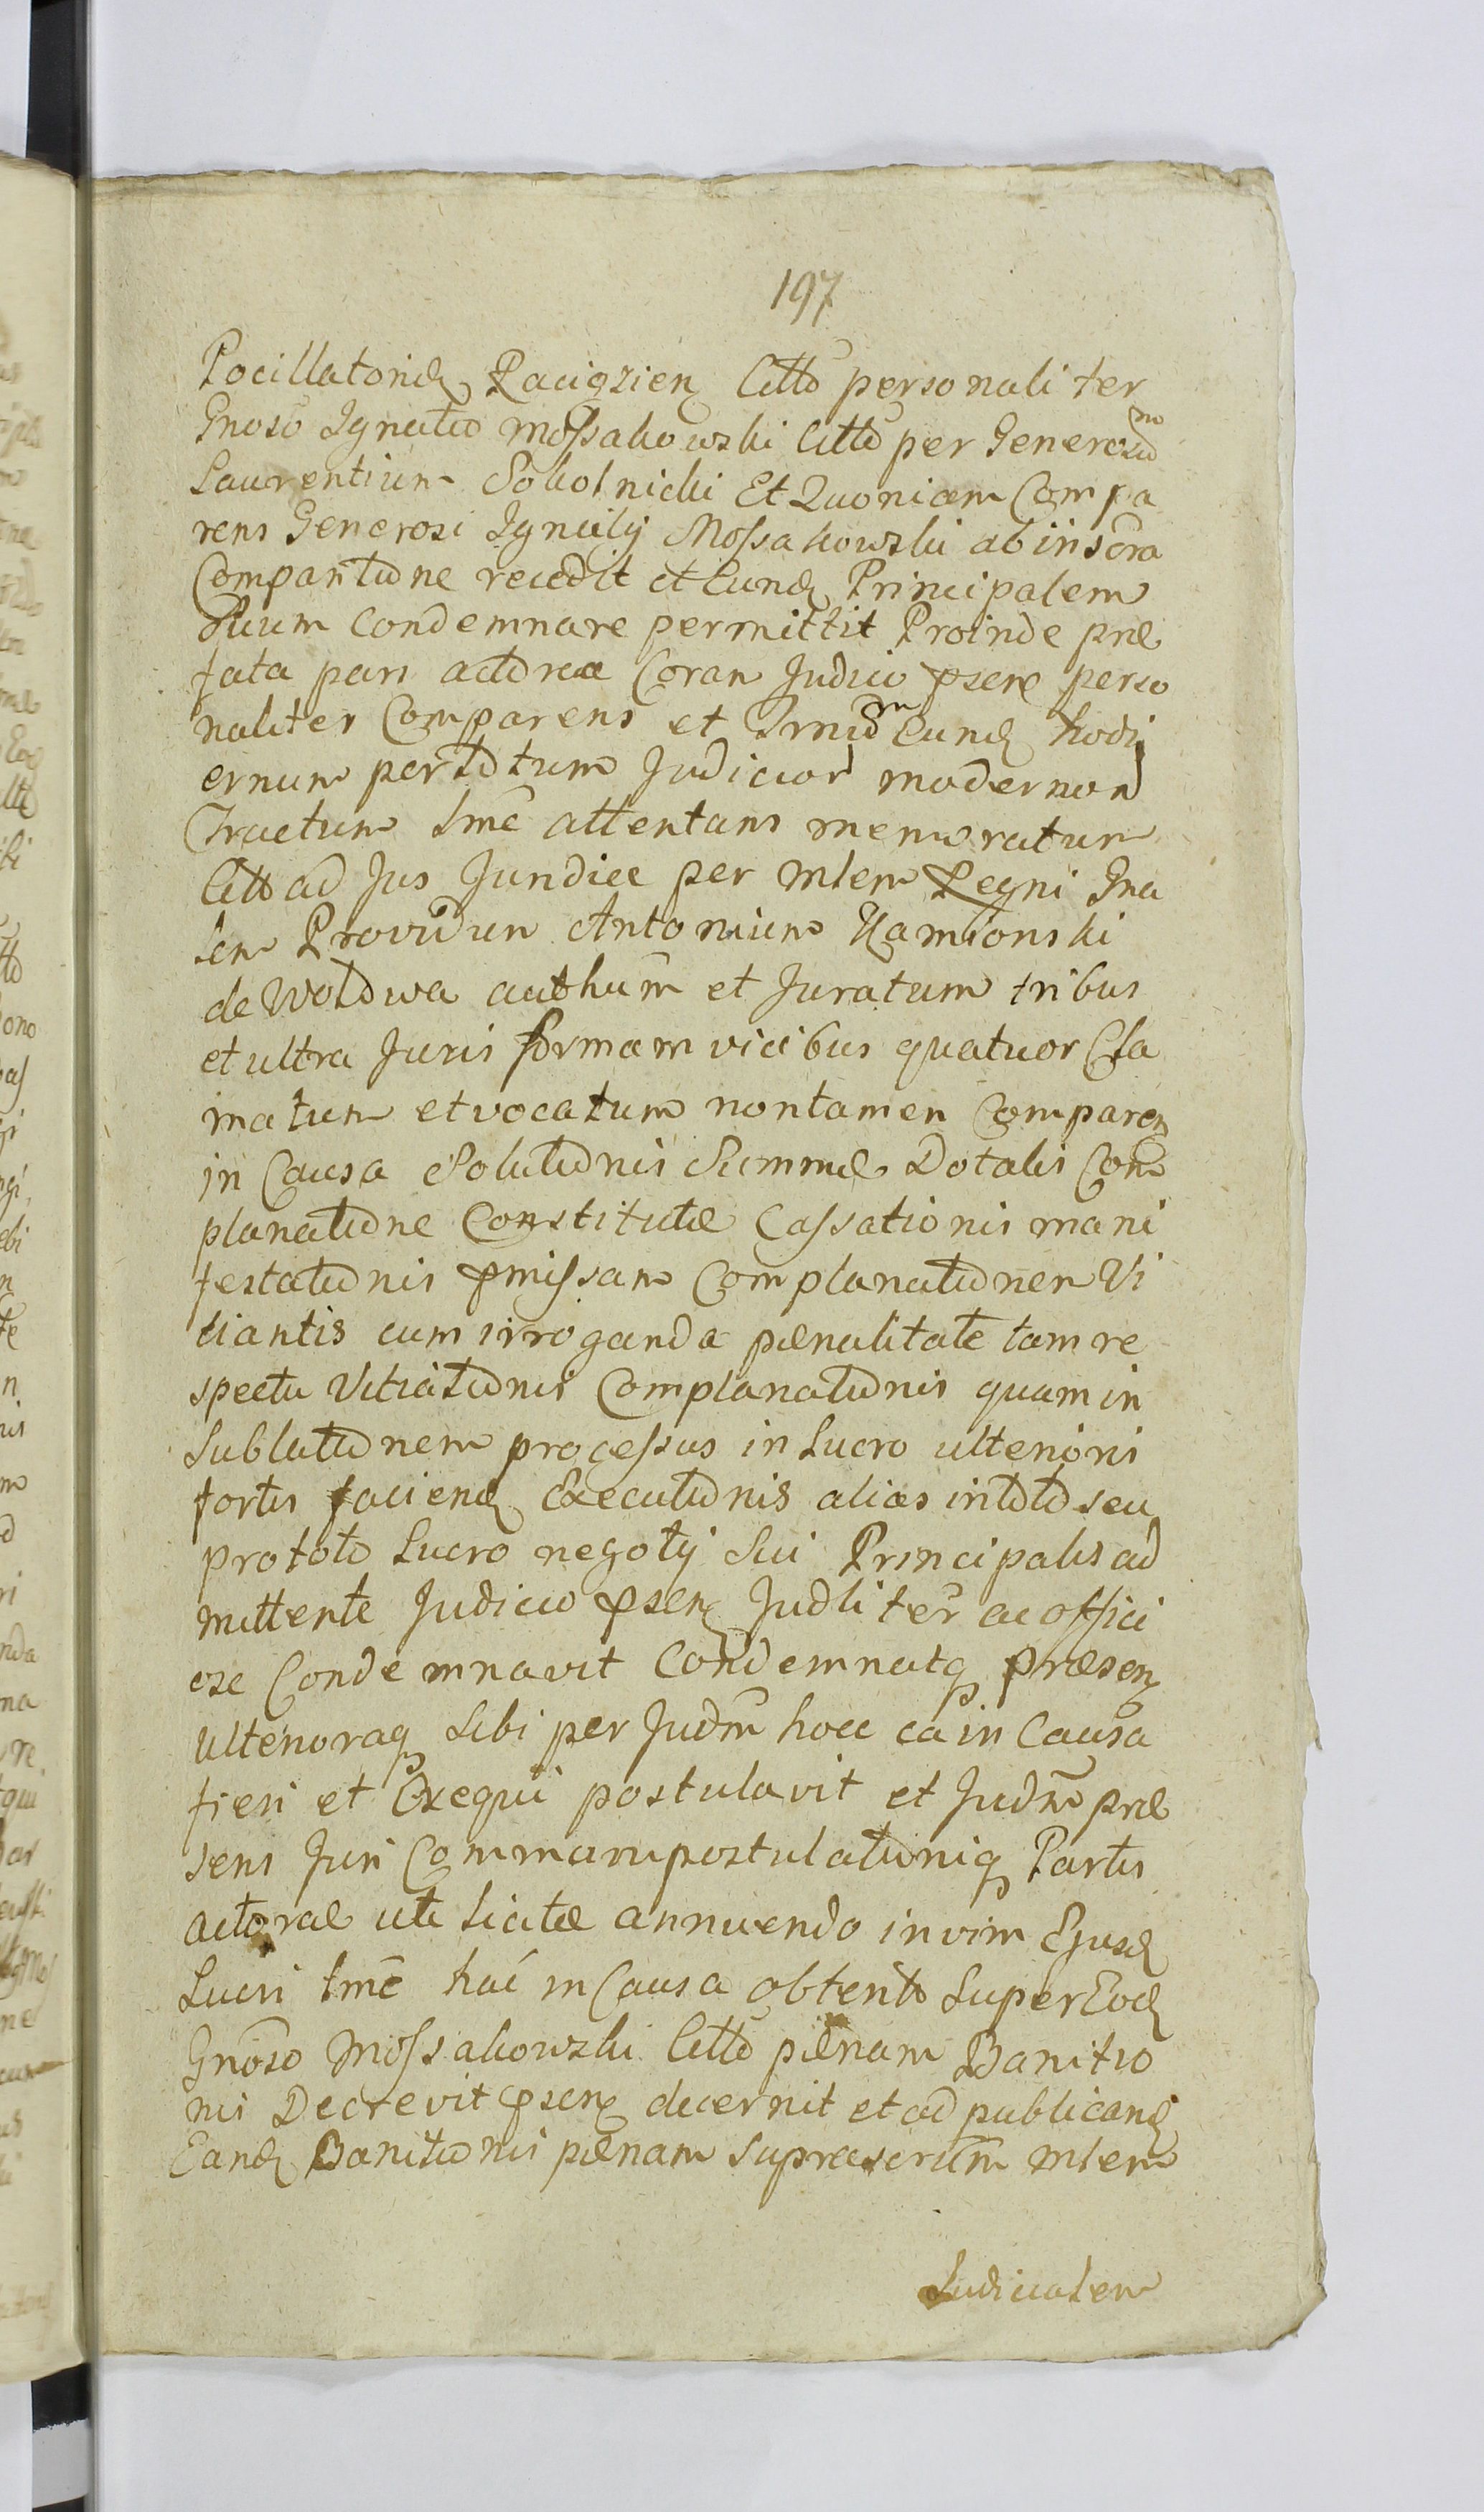 197
Pocillatorid Raciązien Citto personaliter
Gnoso Ignatio Mossakowski Citto per Generosum
Laurentium Sokolnicki Et Quoniam Compa
rens Generosi Ignatij Mossakowski ab
Comparitione recedit et Eund Principalem
Suum Condemnare permittit Proinde præ
fata pars actorea Coram Judicio psene perso
naliter Comparens et Trnum Eund hodi
ernum per totum Judicior modernor
Tractum lme attentans memoratum
Citto ad Jus Juridice per mlem Regni Gna
lem Providum Antonium Kamionski
de Wola authum et Juratum tribus
et ultra Juris formam vicibus quatuor Cla
matum et vocatum non tamen Comparen
in Causa Solutionis Summæ Dotalis Com
planatione Constitutæ Cassationis mani
festationis pmissam Complanationem Vi
tiantis cum irroganda pœnalitate tam re
spectu Vitiationis Complanationis quam in
Sublationem processus in Lucro ulterioris
fortis faciend Executionis alias in toto seu
pro toto Lucro negotij Sui Principalis ad
mittente Judicio psen Judliter ac offici
ose Condemnavit Condemnatq præsen
Ulterioraq Sibi per Judm hocce ea in Causa
fieri et Exequi postulavit et Judm præ
sens Juri Commani postulationiq Partis
actoræ uti licitæ annuendo in vim Ejusd
Lucri lme hac in Causa obtenti Super Eod
Gnoso Mossakowski Citto pœnam Banitio
nis Decrevit psene decernit et ad publicand
Eand Banitionis pœnam suprascrum mlem
Judicialem